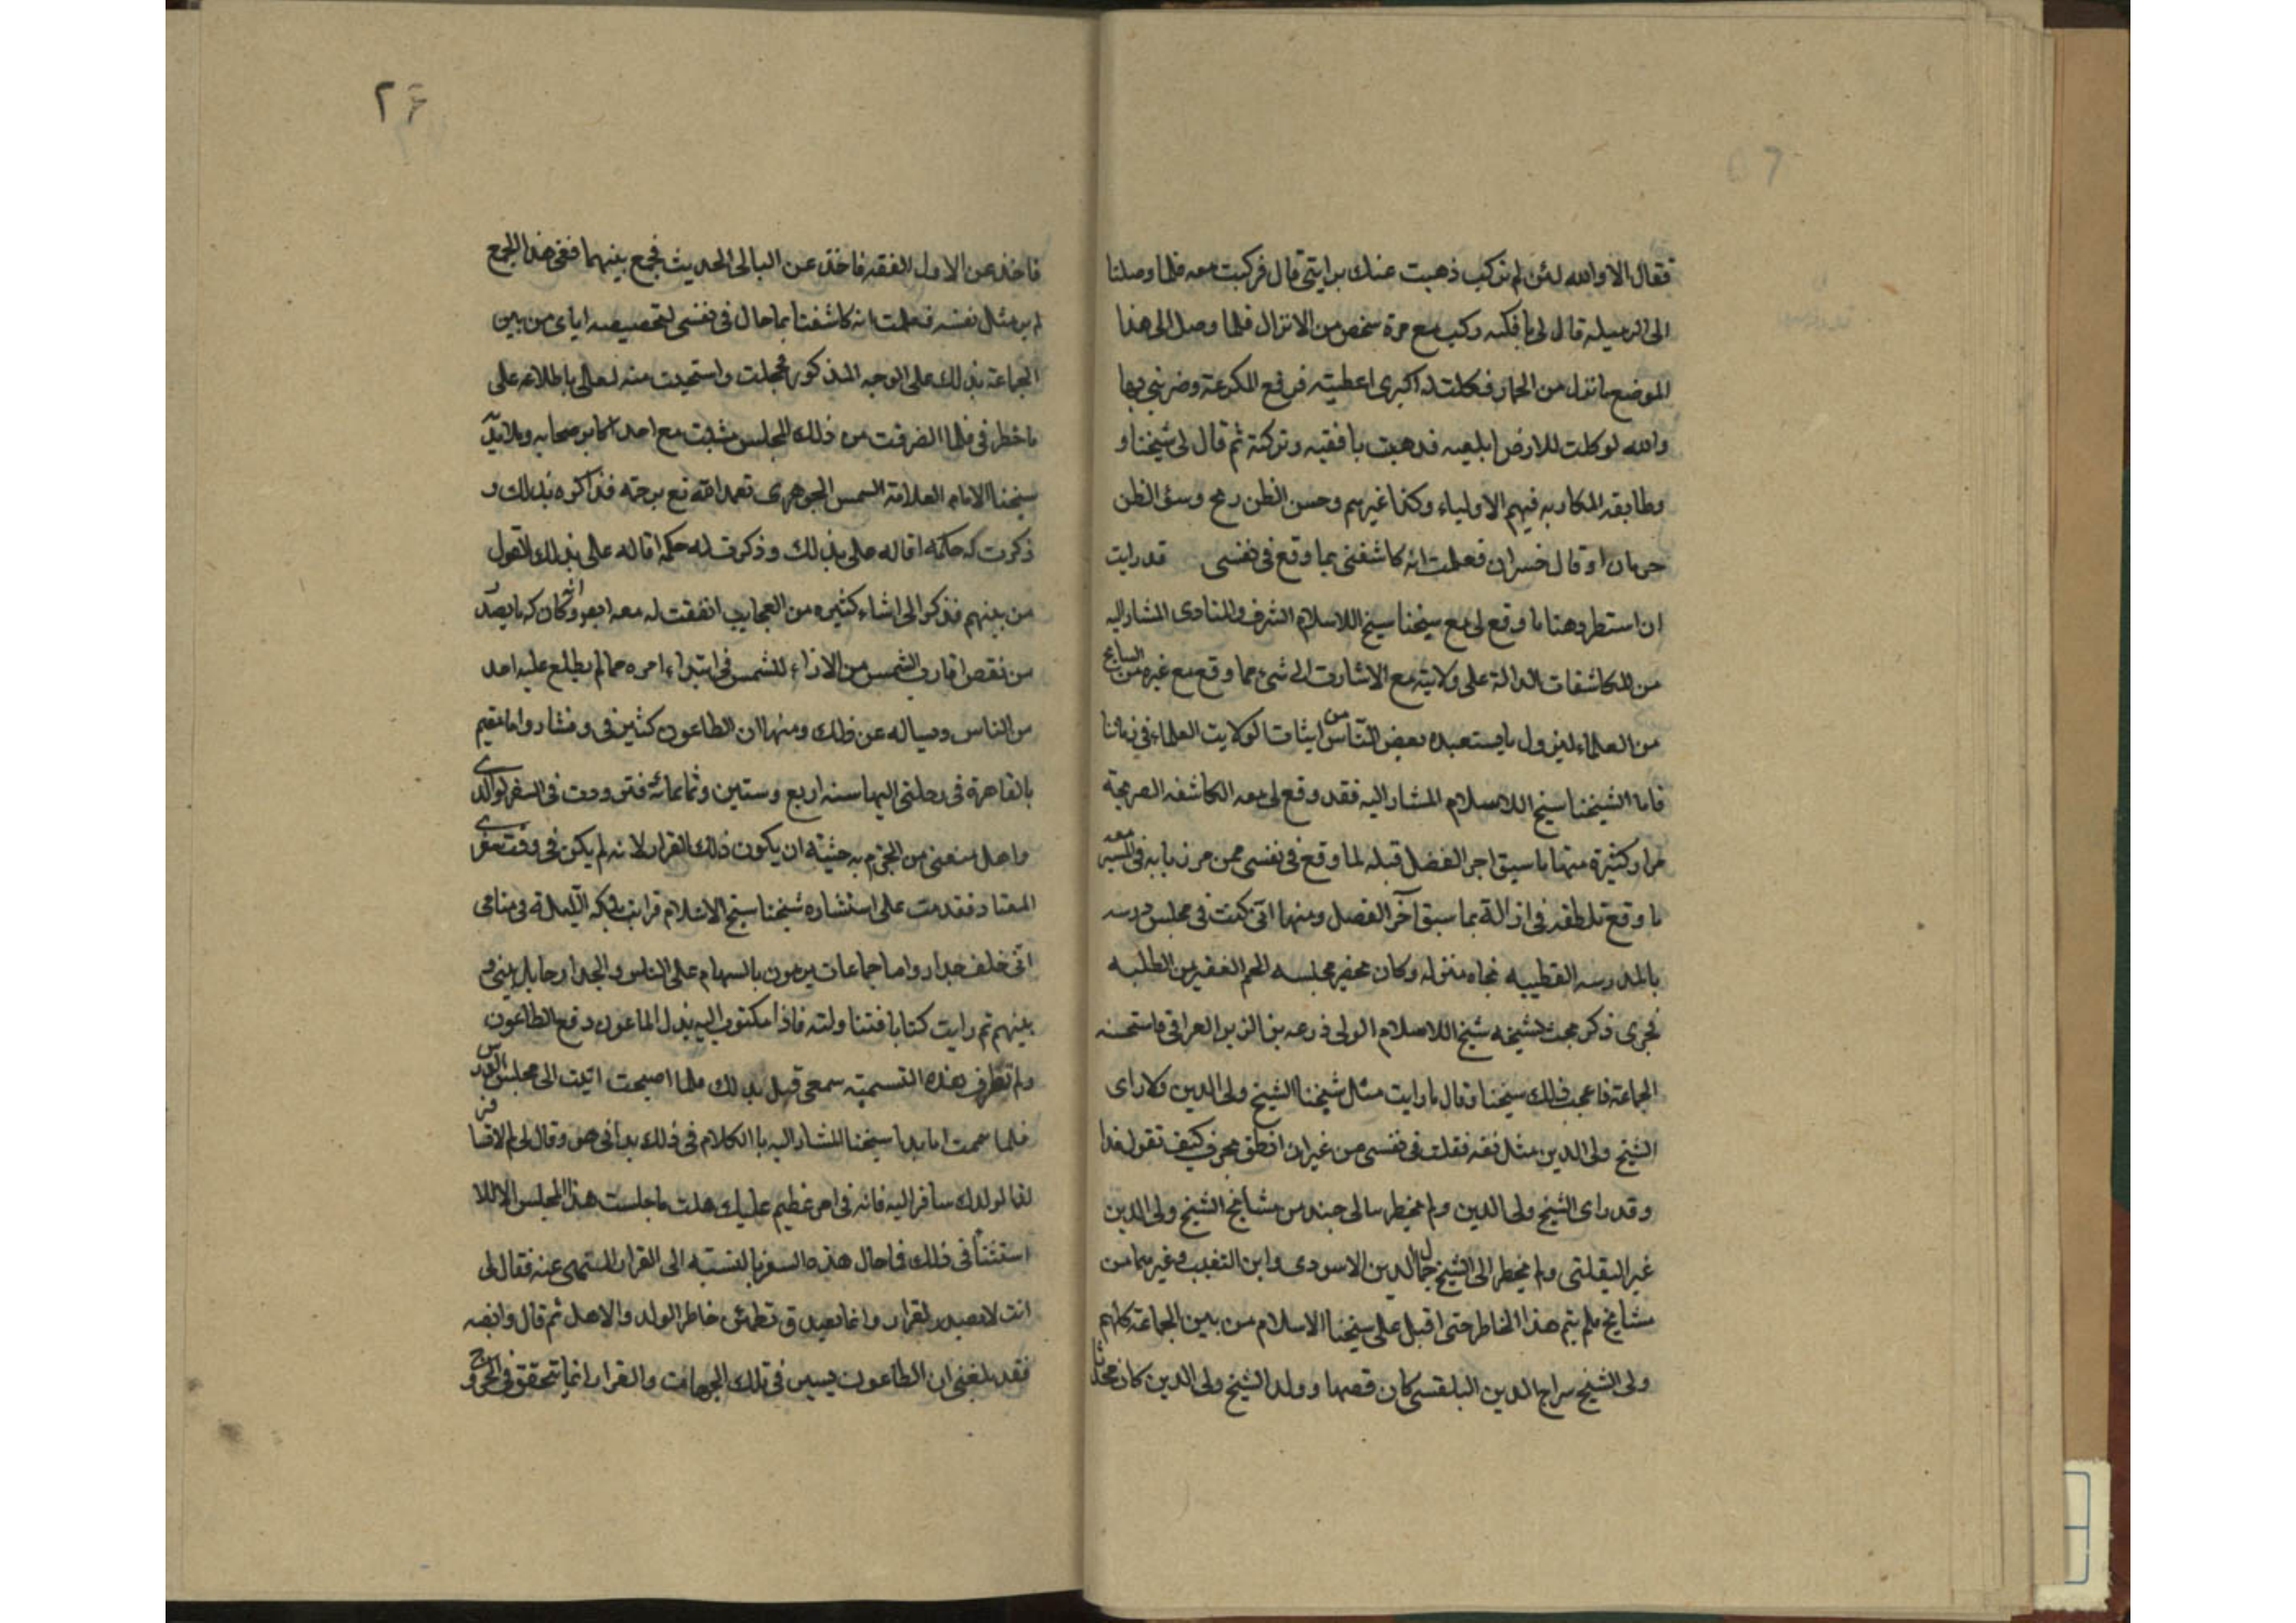 فقال الا والله لئن لم تركب ذهبت عنك برايتى قال فركبت معه فلما وصلنا
الى الرميله قال لى يا فكيه ركب مع مرة شخص من الاتزال فلما وصل الى هذا
الموضع ما نزل من الحمار فكلت له اكبرى اعطيته فرفع للكرعة وضربنى بها
والله لو كلت للارض ابلعيه فدهبت يا فقيه وتركته ثم قال لى شيخنا و
وطابقه المكاريه فيهم الاولياء وكذا غيرهم وحسن الظن رمح وسئ الظن
حرمان او قال خسران فعلمت انه كاشفنى بما وقع فى نفسى قد رايت
ان استطرد هنا ما وقع لى مع سيخنا سيخ اللاسلام الشرف والمناوى المشار اليه
من للكاشفات الدالة على ولايته مع الاشارة الى شئ مما وقع مع غيره من
من العلماء ليزول ما يستعبده بعض الناس من ايثاتا لولايت العلماء فى زماننا
فاما الشيخنا سيخ اللاسلام المشار اليه فقد وقع لى معه الكاشفه الصريحة
مرار كثيرة منها ما سيق اجر الفضل قبله لما وقع فى نفسى ممن مر نا به فى السير معه
ما وقع تلطفه فى ازالة بما سبق آخر الفصل ومنها انى كنت فى مجلس درسه
بالمدرسه القطبيه تجاه منزله وكان يحضر مجلسه الجم الغفير من الطلبه
فجرى ذكر بحث لشيخه شيخ اللاسلام الولى زرعه بن الزين العراقى فاستحسنه
الجماعة فاعجب ذلك سيخنا وقال ما رايت مثل شيخنا الشيخ ولى الدين ولا راى
الشيخ ولى الدين مثل نفسه فقلت فى نفسى من غير ان انطق بحرف كيف تقول هذا
وقد راى الشيخ ولى الدين ولم يخطر ببالى حيند من مشايخ الشيخ ولى الدين
غير البلقينى ولم يخطر الى الشيخ جمال الدين الاسنوى وابن النقيب وغيرهما من
مشايخ فلم يتم هذا الخاطر حتى اقبل على سيخنا الاسلام من بين الجماعة كلهم
ولى الشيخ سراج الدين البلقسى كان فقيها وولد الشيخ ولى الدين كان محدثا
٢۴
فاخذ عن الاول الفقه فاخذ عن البالى الحديث فجمع بينهما ففى هذا الجمع
لم ير مثل نفسه فعلمت انه كاشفنا بما حال فى نفسى لتخصيصه اياى من بين
الجماعة بذلك على الوجه المذكور فخجلت واستحيت منه لعالى باطلاعه على
ما خطر فى فلما انصرفت من ذلك المجلس مشيت مع احد اكابر صحابه
سيخنا الامام العلامة الشمس الجوهرى تعمد الله تع برحته فذاكره بذلك و
ذكرت له حكمه اقاله على بذلك وذكرت له حكمه اقاله على بذلك القول
من بينهم فذكر الى اشاء كثيره من العجايب اتفقت له معه
من نقص اقارب الشمس من الازاء للشمس فى ابتداء امره مما لم يطلع عليه احد
من الناس ويساله عن ذلك ومنها ان الطاعون كثير فى وفشا وانا مقيم
بالقاهرة فى رحلتى اليها سنه اربع وستين وثمانمائه فترددت فى السفر لوالدى
واهل منعنى من الجزم به حثيتة ان يكون ذلك الفرار لانه لم يكن فى وقت سفرى
المعتاد فقدمت على استشاره شيخنا سيخ الاسلام فرايت بلكه الليلة فى منامى
انى خلف جدار واما جماعات يرمون بالسهام على الناس والجدار حايل بينى و
بينهم ثم رايت كتابا فتناولته فاذا مكتوب اليه بذل الماعون دفع الطاعون
ولم تطرق هذه التسمية سمعى قبل بذلك فلما اصبحت اتيت الى مجلس الدرس
فلما سمعت ما بدا سيخنا المشار اليه با الكلام فى ذلك بدانى هو وقال لى
لفا لولدك سافر اليه فانه فى امر عظيم عليك هلت ما جلست هذا المجلس الا للا
استثنا فى ذلك فاحال هذه السفر بالنسبه الى الفرار المنهى عنه فقال لى
انت لا تعبد لفرار وانما تعيد ق تطمئن خاطر الولد والاهل ثم قال وايضه
فقد بلغنى ان الطاعون يسير فى تلك الجهات والفرار انما يتحقق فى الخروج